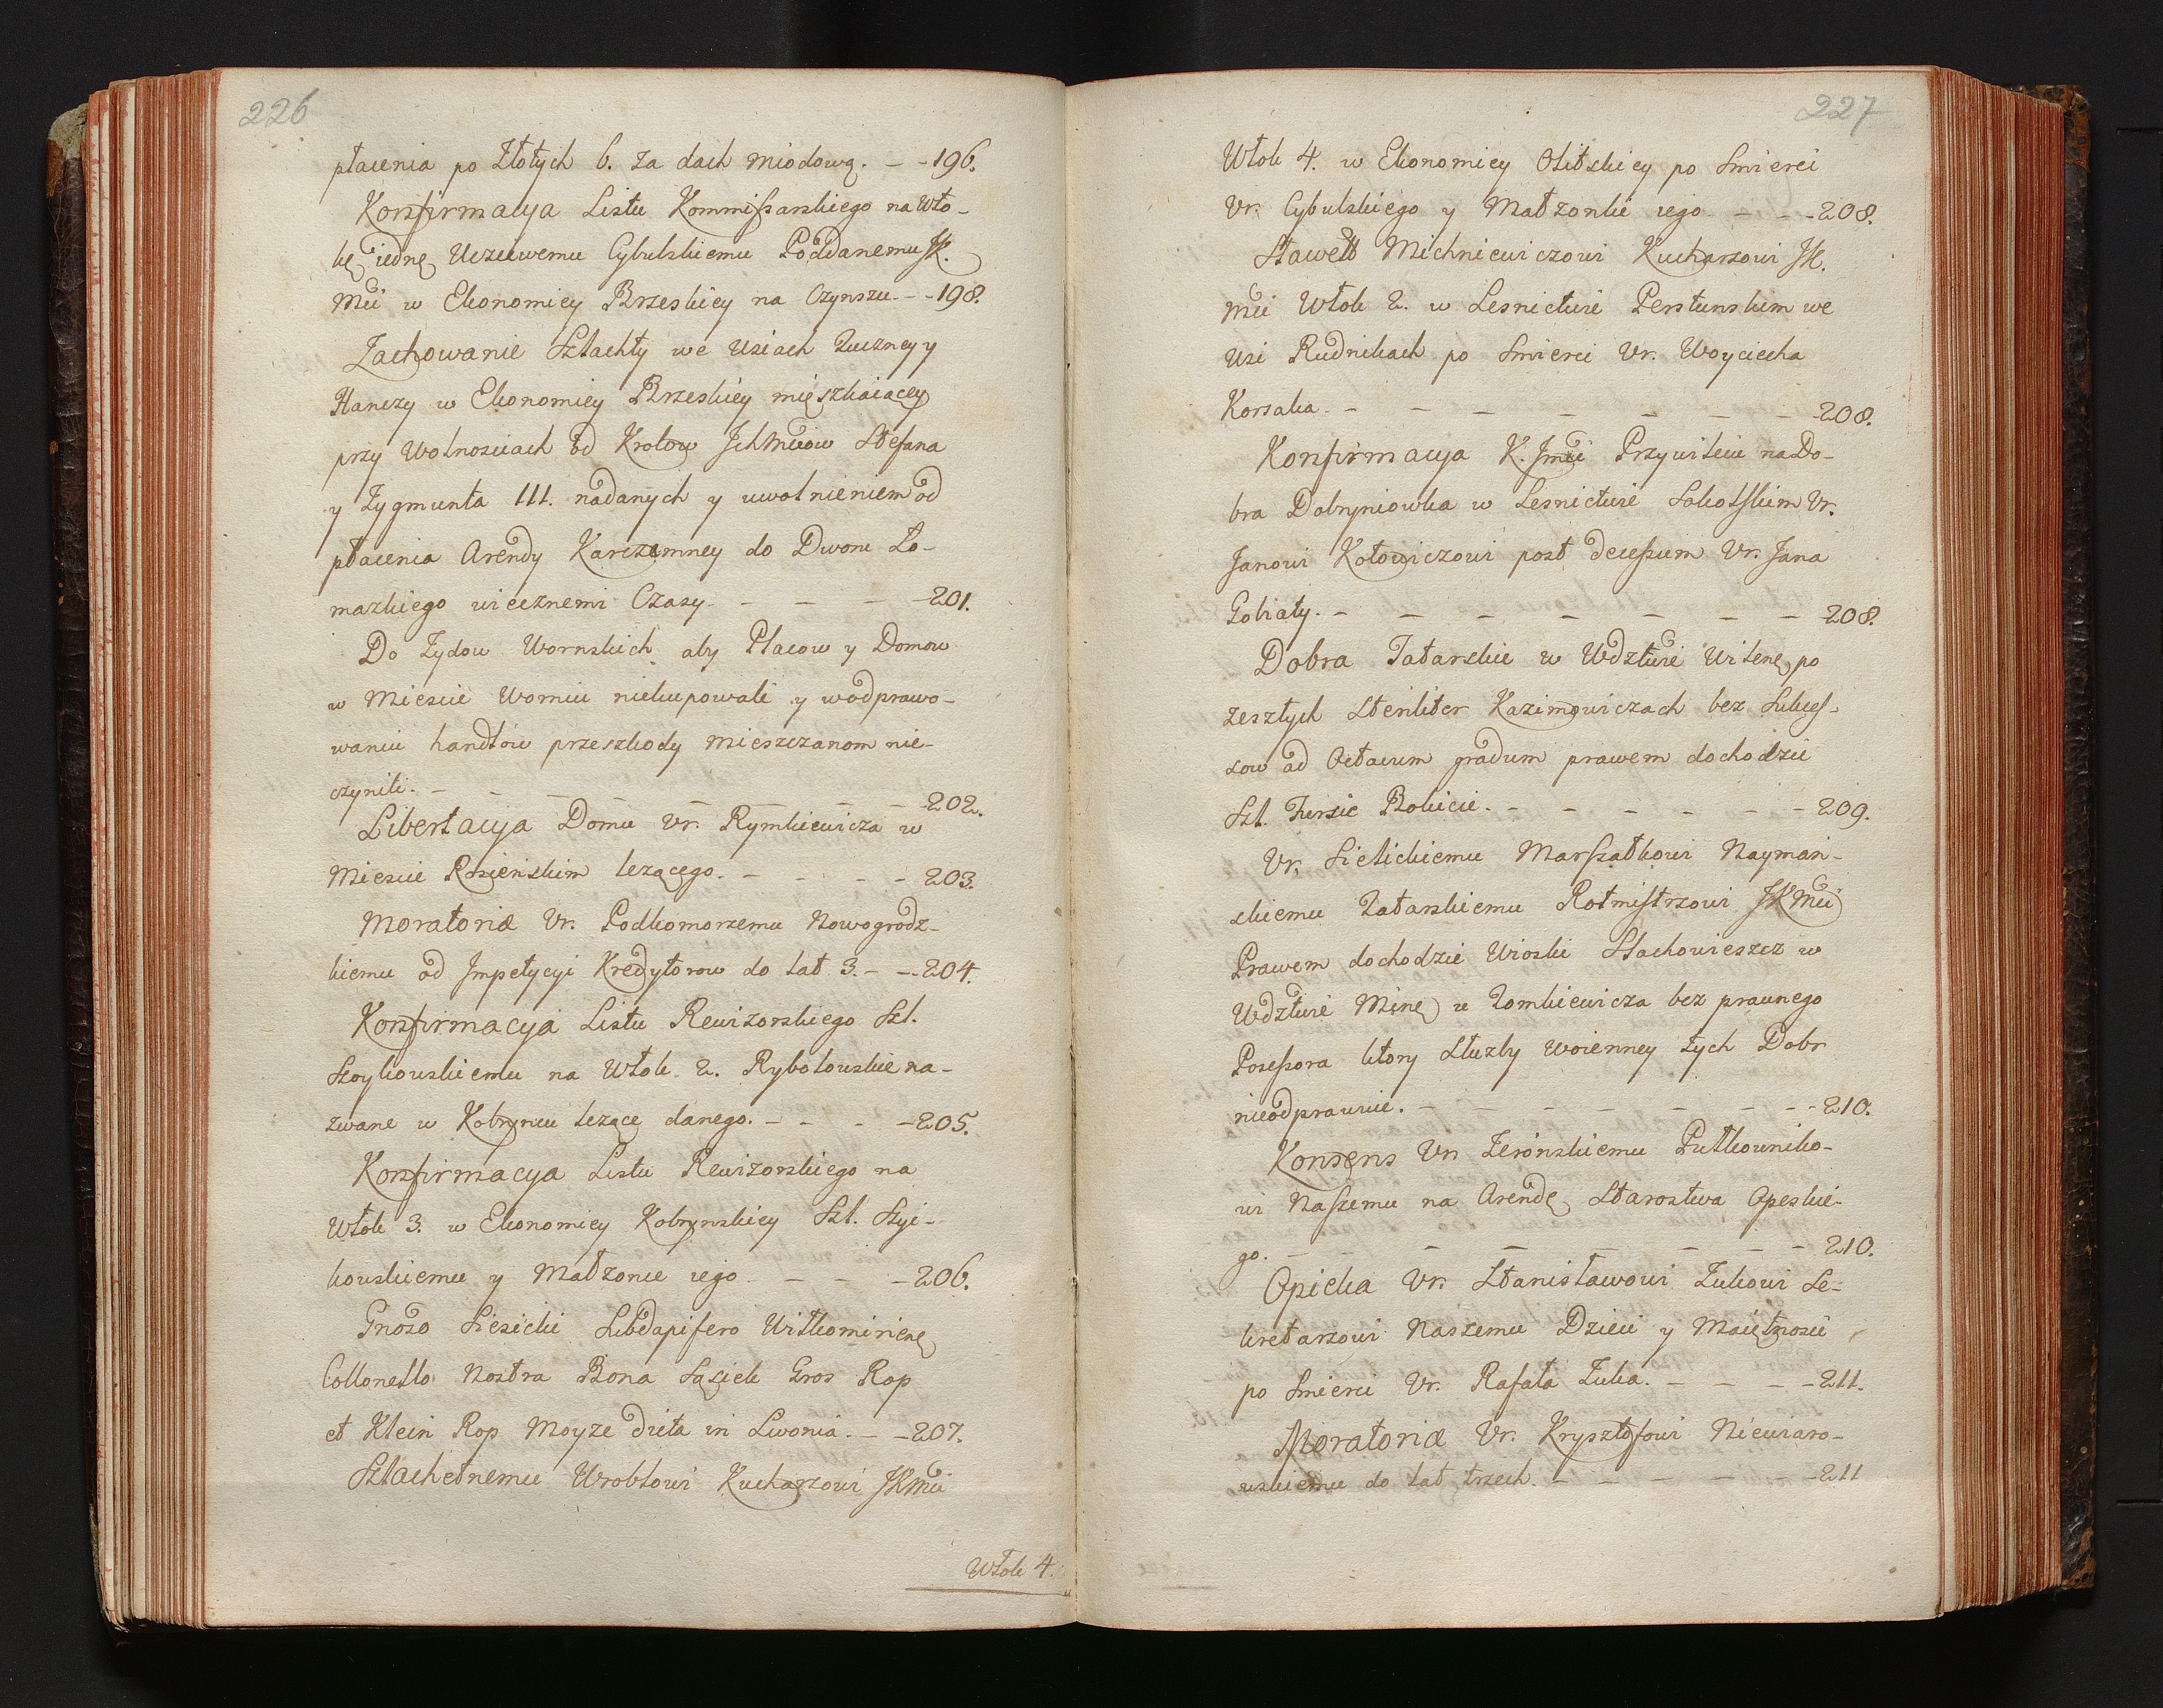 226
płacenia po Złotych 6. za dach miodową. – – 196.
Konfirmacya Listu Kommissarskiego na Wło-
kę iednę Uczciwemu Cybulskiemu Poddanemu JK.
Mći w Ekonomiey Brzeskiey na Czynszu. – – 198.
Zachowanie Szlachty we Wsiach Zuczney y
Hanczy w Ekonomiey Brzeskiey mięszkaiącey
przy Wolnosciach od Krolow Ichmciow Stefana
y Zygmunta III. nadanych y uwolnieniem od
płacenia Arendy Karczemney do Dworu Ło-
mazkiego wiecznemi Czasy. – – – – 201.
Do Zydow Wornskich aby Placow y Domow
w Miescie Worniu niekupowali y wodprawo-
waniu handlow przeszkody Mieszczanom nie-
czynili. – – – – – – – – 202.
Libertacya Domu Ur. Rymkiewicza w
Miescie Rosieńskim lezącego. – – – – 203.
Moratoriæ Ur. Podkomorzemu Nowogrodz-
kiemu od Impetycyi Kredytorow do lat 3. – – 204.
Konfirmacya Listu Rewizorskiego Szl.
Szoykowskiemu na Włok 2. Rybołowskie na-
zwane w Kobryniu lezące danego. – – – – 205.
Konfirmacya Listu Rewizorskiego na
Włok 3. w Ekonomiey Kobrynskiey Szl. Szyi-
kowskiemu y Małzonce iego – – – – 206.
Gnoso Siesicki Subdapifero Wiłkomirienę
Collonello Nostra Bona Sąsiek Gros Rop
et Klein Rop Moyze dicta in Livonia. – – 207.
Szlachetnemu Wroblowi Kucharzowi JKMći
Włok 4.
227
Włok 4. w Ekonomiey Olitskiey po Smierci
Ur. Cybulskiego y Małzonki iego – – – 208.
Sławett Michniewiczowi Kucharzowi JK.
Mći Włok 2. w Lesnictwie Perstunskim we
Wsi Rudnikach po Smierci Ur. Woyciecha
Korsaka. – – – – – – – – 208.
Konfirmacya K. Jmći Przywileiu na Do-
bra Dobryniowka w Lesnictwie Sokolskim Ur.
Janowi Kotowiczowi post decessum Ur. Jana
Gobiaty. – – – – – – – 208.
Dobra Tatarskie w Wdztwie Wilenę po
zeszłych Steriliter Kazimowiczach bez Sukces-
sow ad Octavum gradum prawem dochodzic
Szl. Fursie Bokicie. – – – – – – – 209.
Ur. Sielickiemu Marszałkowi Nayman-
skiemu Tatarskiemu Rotmistrzowi JKMći
Prawem dochodzic Wioski Stachowieszcz w
Wdztwie Minę u Tomkiewicza bez prawnego
Possessora ktory Słuzby Woienney z tych Dobr
nieodprawuie. – – – – – – – – 210.
Konsens Ur. Zeronskiemu Pułkowniko-
wi Naszemu na Arendę Starostwa Opeskie-
go. – – – – – – – – 210.
Opieka Ur. Stanisławowi Zukowi Se-
kretarzowi Naszemu Dzieci y Maiętnosci
po Smierci Ur. Rafała Zuka. – – – – 211.
Moratoriæ Ur. Krysztofowi Niewiaro-
wskiemu do lat trzech. – – – – – – 211